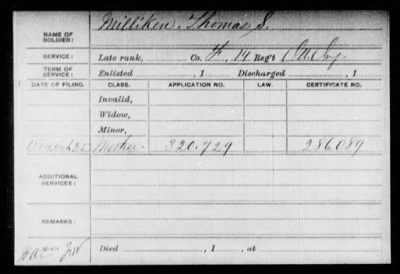 NAME OF SOLDIER: Milliken, Thomas S.
SERVICE: Late rank, Co. H, 14 Reg't
TERM OF SERVICE: Enlisted , 1 Discharged , 1
DATE OF FILING. CLASS. APPLICATION NO. LAW. CERTIFICATE NO.
Invalid,
Widow,
Minor,
Mother 320.729 286089
ADDITIONAL SERVICES:
REMARKS:
Died , 1 , at